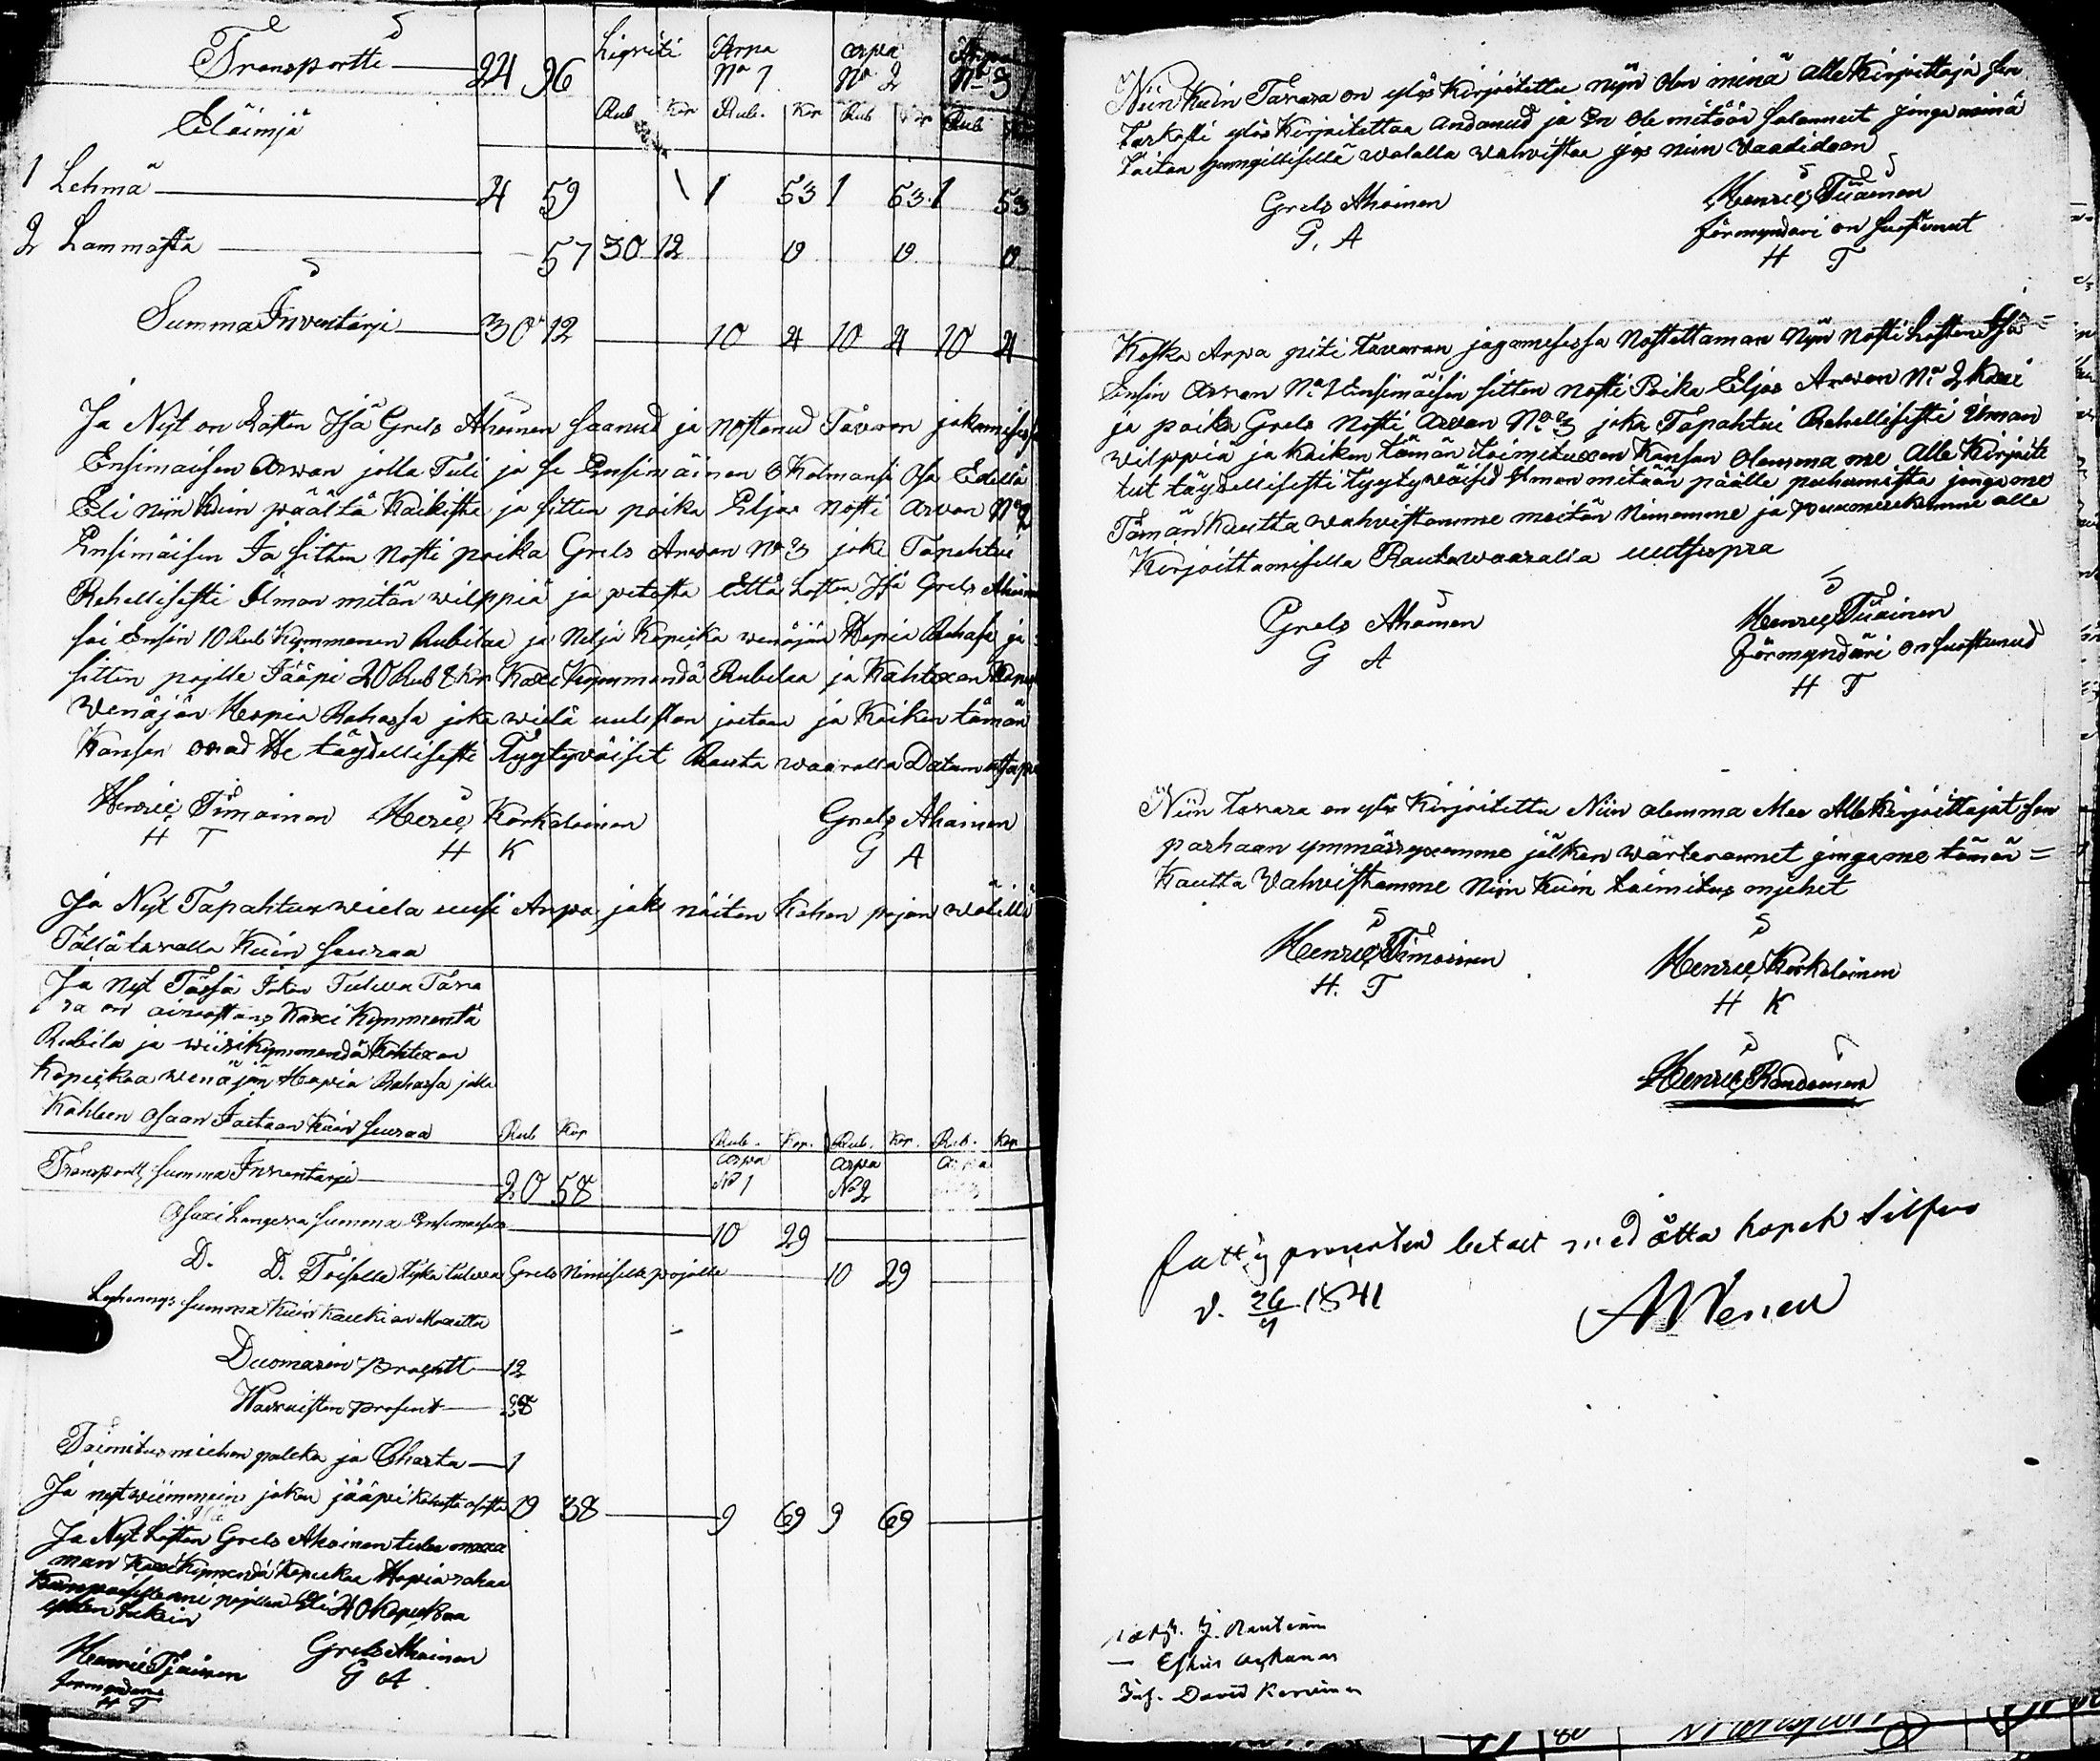 Transportti 24 96 Arpa Arpa Arpa
No 1 No 2 No 3
Rub Kop Rub. Kop Rub Kop Rub
Eläimjä
1 Lehmä 4 59 1 53 1 53 1 53
2 Lammasta 57 30 12 19 19 19
Summa Inventarji 30 12 10 4 10 4 10 4
Ja Nyt on Lasten Isä Grels Ahoinen saanud ja nostanud Tavaran jakamisessa
Ensimäisen Arwan jolla Tuli ja se Ensimäinen Kolmansi Osa Edellä
Eli niin Kuin päältä Kaikista ja sitten poika Eljas Nosti Arvan No 2
Ensimäisen Ja sitten Nosti poika Grels Arwan No 3 joka Tapahtui
Rehellisesti Ilman mitän wilppiä ja petosta Että Lasten Isä Grels
sai Ensin 10 Rub Kymmenen Rubilaa ja Neljä Kopeika wenäjän Hopia Rahasa ja
sitten pojille Jääpi 20 Rub 8 Kop Kaxi Kymmendä Rubilaa ja Kahdexan
Wenäjän Hopia Rahassa joka wielä uudestan jaetaan ja Kaiken tämän
Kanssa ovad He täydellisesti Tyytyväiset Rautawaaralla Datum
Henric Timoinen Henric Korkalainen Grels Ahoinen
H T H K G A
Ja Nyt Tapahtuu wiela uusi Arpa jako näiten Kahen pojan wälillä
Tällä tavalla Kuin seuraa
Ja Nyt Tässä Jakon Tuleva Tava
ra on ainoastans Kaxi Kymmentä
Rubila ja wiisikymmendä Kahdexan
Kopeikaa wenäjän Hopia Rahassa jolla
Kahteen osaan Jaetaan Kuin seuraa Rub Kop Rub. Kop. Rub. Kop. Rub. Kop
Transportt summa Inventarji 20 58 arpa No 1 arpa No 2
summa Ensimäiselle 10 29
D. D. Toiselle Grels Nimiselle pojalle 10 29
summa Kuin Kaikki on Maxettu
Duomarin Prosentt 12
Waivaisten prosent 38
Toimitusmiehen palcka ja Charta 1
Ja nyt wiimmein jakon jääpi kahesta osasta 19 38 9 69 9 69
Ja Nyt Lasten Grels Ahoinen tulee maxa
man Kaxi Kymendä Kopeikaa Hopia rahaa
pojillen Eli 40 Kopeikaa
Henric Grels Ahoinen
H T G A
Niin Kuin Tavara on ylös Kirjoitettu niin Olen minä Alle Kirjoittaja sen
tarkasti ylös Kirjoitettaa Andanud ja En Ole mitään salannut jonga minä
Taitan hengillisellä walalla wahvistaa jos niin Vaaditaan
Grels Ahoinen Henric Tiiainen
G. A förmyndari on suostunut
H T
Koska Arpa piti tavaran jagamisessa Nostettaman Nyin Nosti Lasten Isä
Ensin Arvan No 1 Ensimäisen sitten Nosti Poika Eljas Arwan No 2 Kaxi
ja poika Grels Nosti Arvan No 3 joka Tapahtui Rehellisesti Ilman
wilppiä ja Kaiken tämän toimituxen Kanssan Olemma me Alle Kirjoite
tut täydellisesti tyytywäised Ilman mitään päälle puhumista jonga me
Tämän Kautta wahvistamme meitän Nimemme ja puumerckimme alle
Kirjoittamisella Rautawaaralla uutsupra
Grels Ahoinen Henric Tiiainen
G A förmyndäri on suostunud
H T
Niin tavara on ylös Kirjoitettu Niin olemma Mee Alle Kirjoittajat sen
parhaan ymmärryxemme jälken wärteerannet jonga me tämän
Kautta Vahvistamme Niin Kuin toimitus mjehet
Henric Timoinen Henric Korkalainen
H. T H K
Henric Rondainen
fattig procenten betalt med åtta kopek silfver
d. 26/7 1841
David